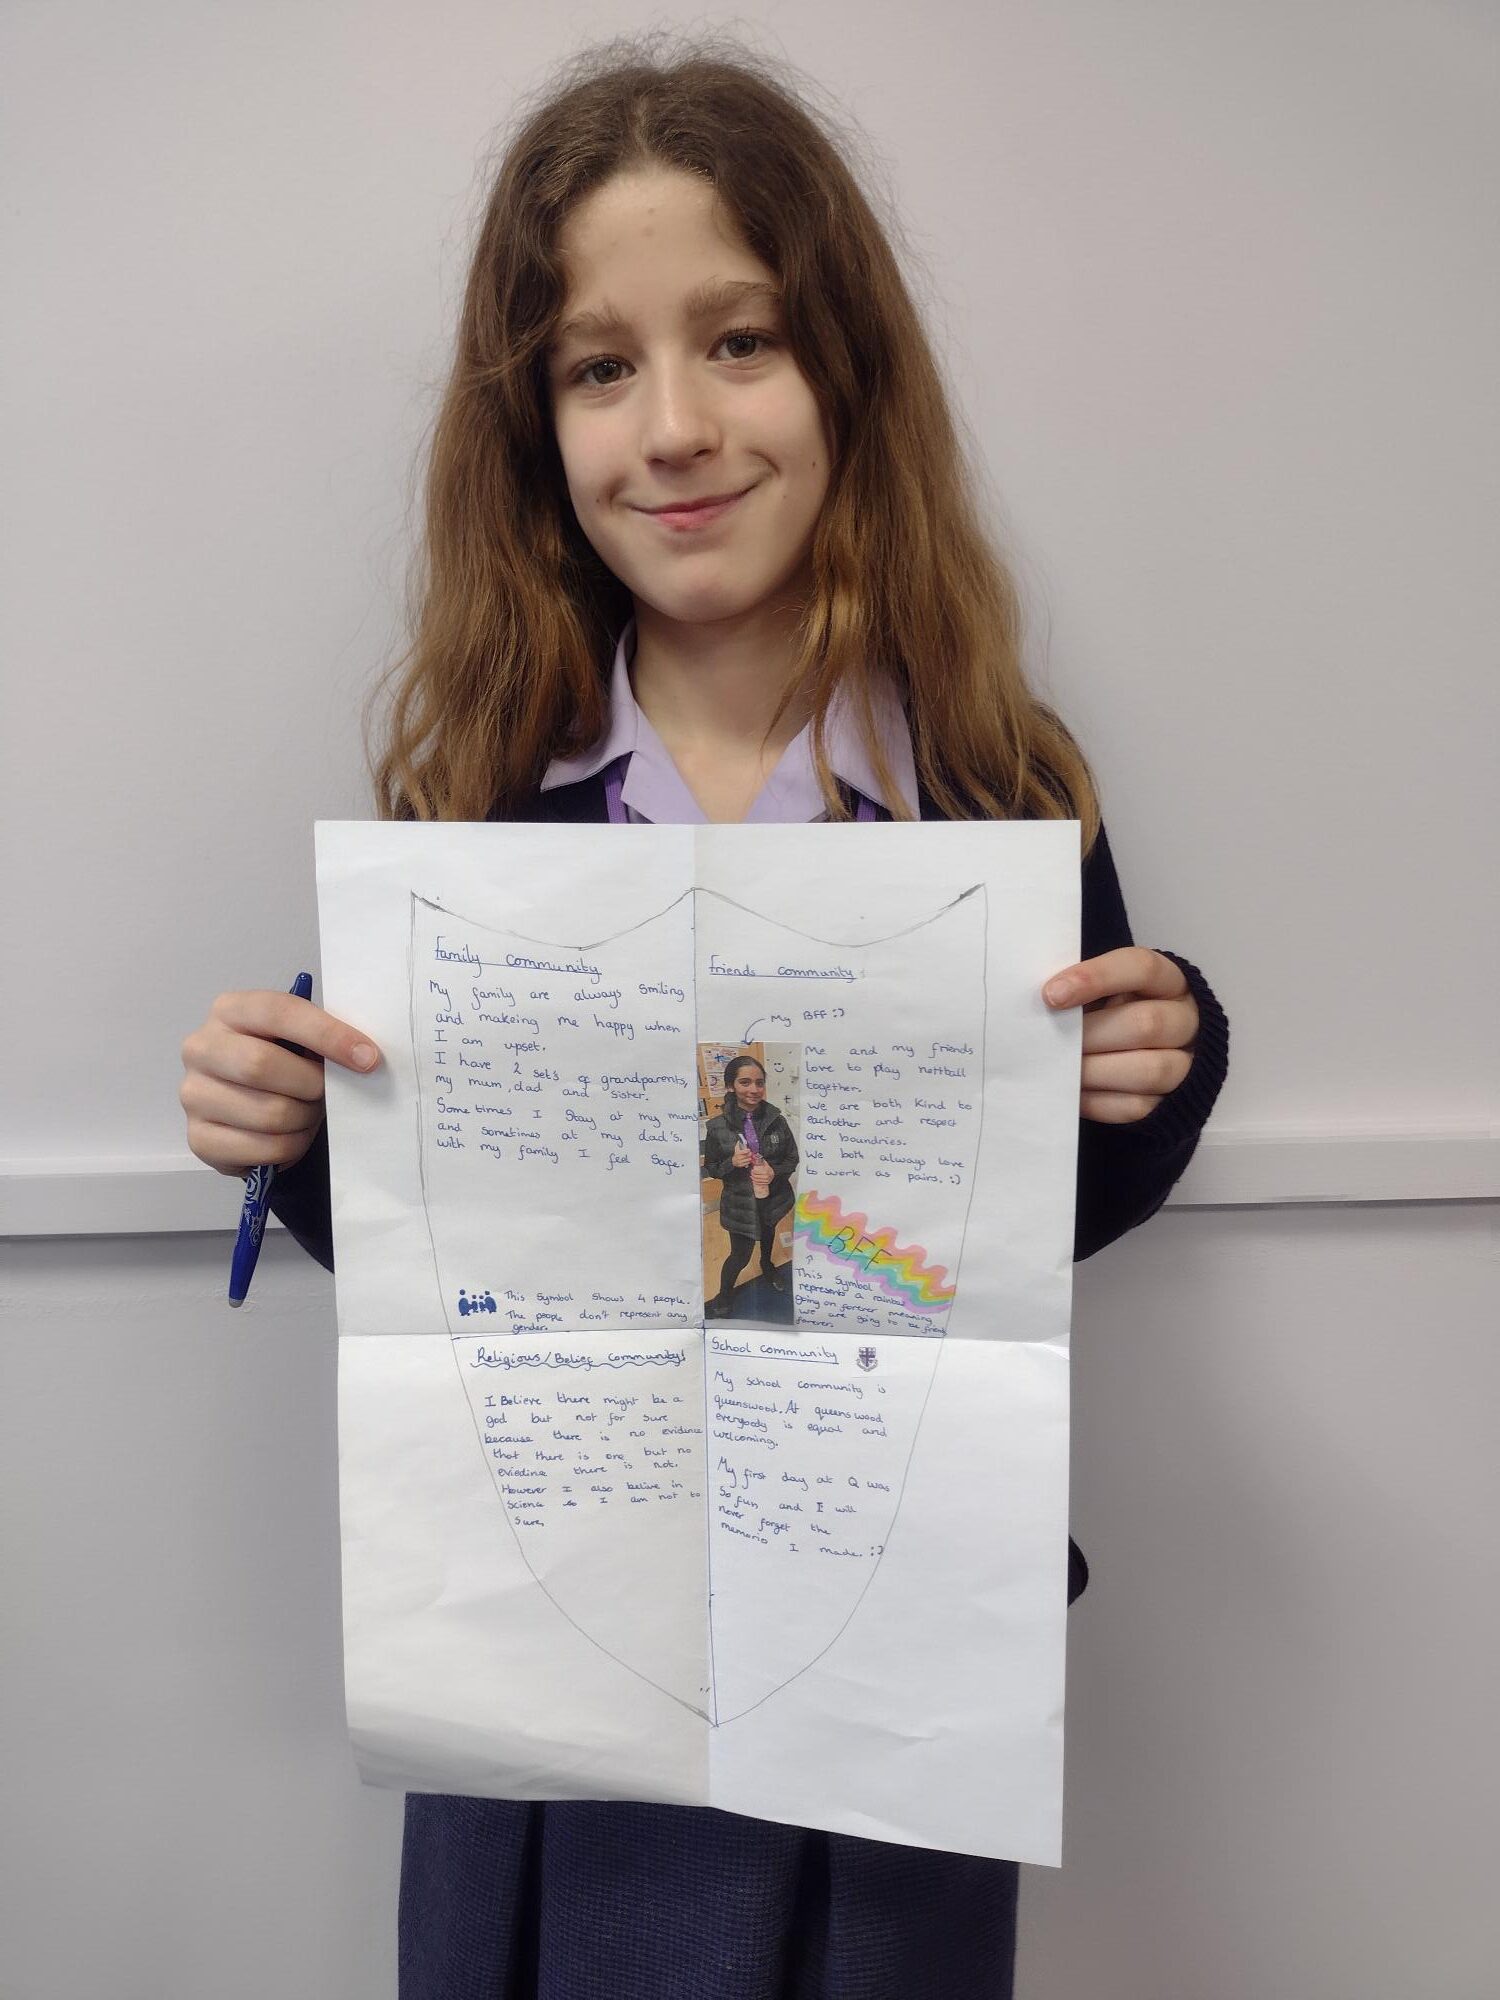 Family community
My family are always smiling
and makeing me happy when
I am upset.
I have 2 set's of grandparents,
my mum, dad and sister.
Sometimes I stay at my mums
and sometimes at my dad's.
with my family I feel safe.
This Symbol shows 4 people.
The people don't represent any
gender.
friends community
My BFF :)
Me and my friends
love to play nettball
together.
we are both kind to
eachother and respect
are boundries.
We both always love
to work as pairs. :)
BFF
This Symbol
represents a rainbow
going on forever meaning
we are going to be friends
forever.
Religious/Belief community!
I Believe there might be a
god but not for sure
because there is no evidence
that there is one but no
eviedince there is not.
However I also belive in
science so I am not to
sure.
School community
My school community is
queenswood. At queenswood
everybody is equal and
welcoming.
My first day at Q was
so fun and I will
never forget the
memories I made. :)